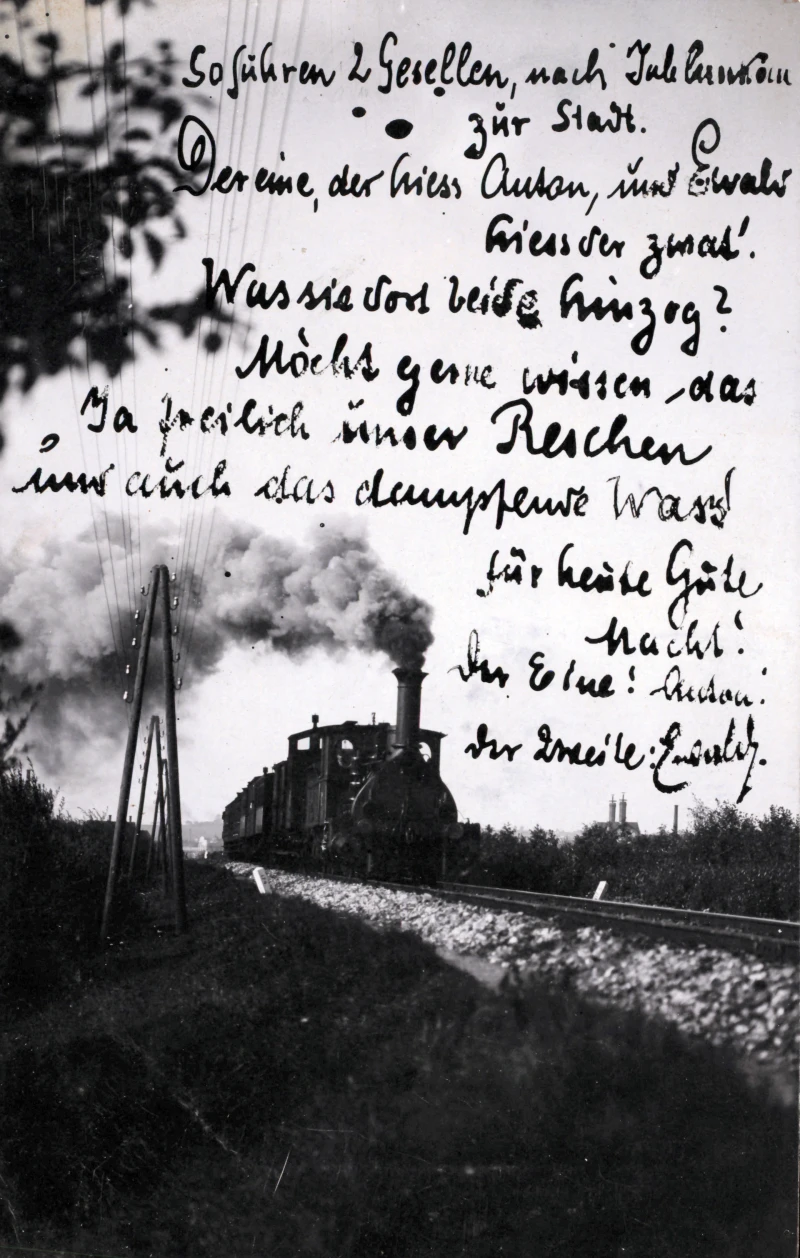 So fuhren 2 Gesellen, nach Jablunkau
zur Stadt.
Der eine, der hiess Anton, und Ewald
hiess der zwat'.
Was sie dort beide hinzog?
Möcht gerne wissen das
Ja freilich unser Reschen
und auch das dampfende Wass'
für heute Gute
Nacht!
Der Eine: Anton!
Der Zweite: Ewald.